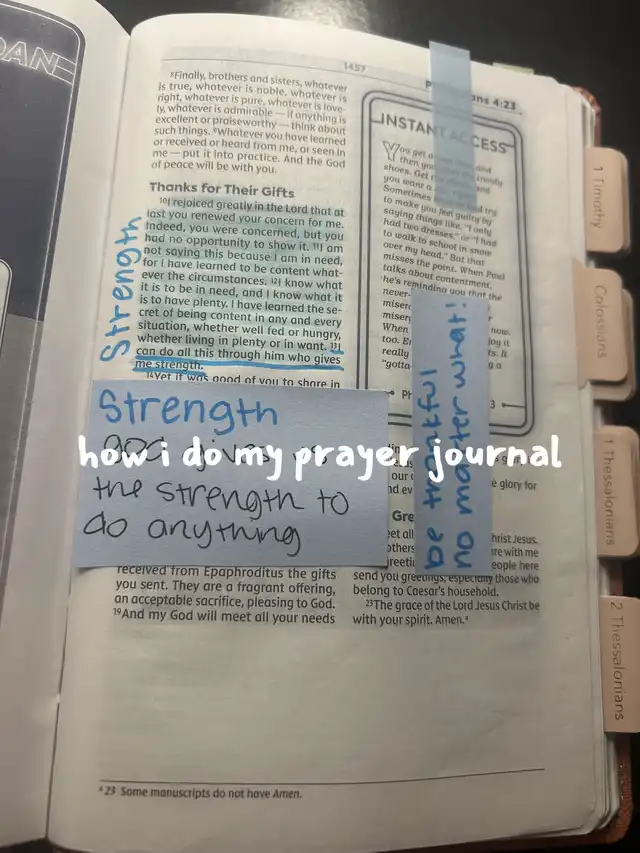 DAN
1457
4:23
⁸Finally, brothers and sisters, whatever
is true, whatever is noble, whatever is
right, whatever is pure, whatever is love-
ly, whatever is admirable — if anything is
excellent or praiseworthy — think about
such things. ⁹Whatever you have learned
or received or heard from me, or seen in
me — put it into practice. And the God
of peace will be with you.
Thanks for Their Gifts
¹⁰I rejoiced greatly in the Lord that at
last you renewed your concern for me.
Indeed, you were concerned, but you
had no opportunity to show it. ¹¹I am
not saying this because I am in need,
for I have learned to be content what-
ever the circumstances. ¹²I know what
it is to be in need, and I know what it
is to have plenty. I have learned the se-
cret of being content in any and every
situation, whether well fed or hungry,
whether living in plenty or in want. ¹³I
can do all this through him who gives
me strength.
¹⁴Yet it was good of you to share in
Strength
Strength
god gives us
the strength to
do anything
how i do my prayer journal
received from Epaphroditus the gifts
you sent. They are a fragrant offering,
an acceptable sacrifice, pleasing to God.
¹⁹And my God will meet all your needs
INSTANT ACCESS
You get a and
then you
shoes. Get
you want a try
Sometimes
to make you feel guilty by
saying things like, "I only
had two dresses," or "I had
to walk to school in snow
over my head." But that
misses the point. When Paul
talks about contentment,
he's reminding you that the
never-
When now.
too. it
really It
"gotta- a
3
be thankful
no matter what!
our e glory for
Gre
eet all hrist Jesus.
re with me
eople here
send you greetings, especially those who
belong to Caesar's household.
²³The grace of the Lord Jesus Christ be
with your spirit. Amen.ᵃ
ᵃ 23 Some manuscripts do not have Amen.
1 Timothy
Colossians
1 Thessalonians
2 Thessalonians